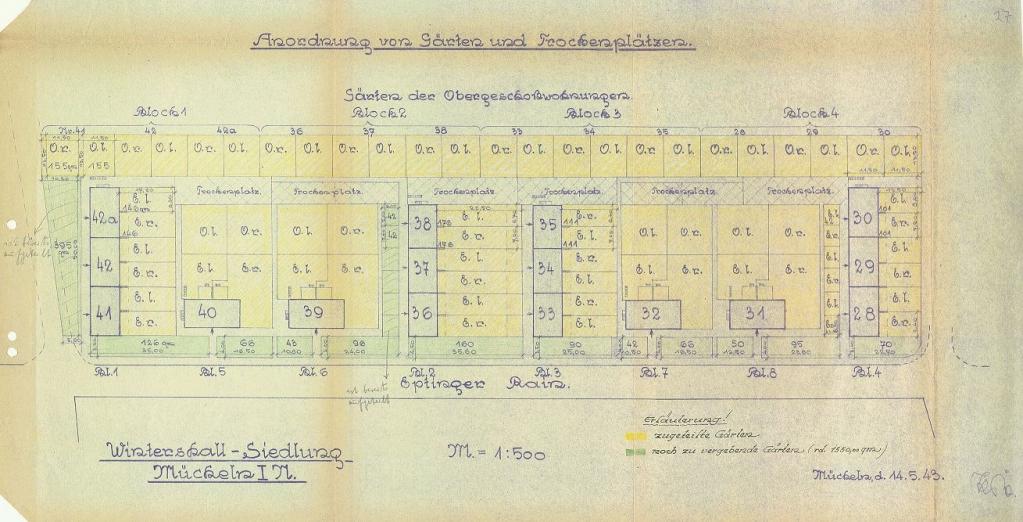 27
Anordnung von Gärten und Trockenplätzen.
Gärten der Obergeschoßwohnungen.
Block 1 Block 2 Block 3 Block 4
Nr. 41 42 42a 36 37 38 33 34 35 28 29 30
O.r. O.l. O.r. O.l. O.r. O.l. O.r. O.l. O.r. O.l. O.r. O.l. O.r. O.l. O.r. O.l. O.r. O.l. O.r. O.l. O.r. O.l. O.r. O.l.
155qm 155
Trockenplatz. Trockenplatz. Trockenplatz. Trockenplatz. Trockenplatz. Trockenplatz.
42a 42 41
E.l. E.r. E.l. E.r. E.l. E.r.
146
395
O.l. O.r. E.l. E.r. 40
O.l. O.r. E.l. E.r. 39
42 42
38 37 36
E.l. E.r. E.l. E.r. E.l. E.r.
178 178
35 34 33
E.r. E.l. E.r. E.l. E.r. E.l.
111 111
O.l. O.r. E.l. E.r. 32
O.l. O.r. E.l. E.r. 31
30 29 28
E.l. E.r. E.l. E.r. E.l. E.r.
101 101
126 qm 66 43 96 160 90 42 66 50 95 70
Bl.1 Bl.5 Bl.6 Bl.2 Bl.3 Bl.7 Bl.8 Bl.4
Eptinger Rain.
ist bereits
aufgeteilt
Wintershall-Siedlung
Mücheln I N.
M. = 1:500
Erläuterung!
zugeteilte Gärten
noch zu vergebende Gärten (rd. 1550,00 qm)
Mücheln, d. 14.5.43.